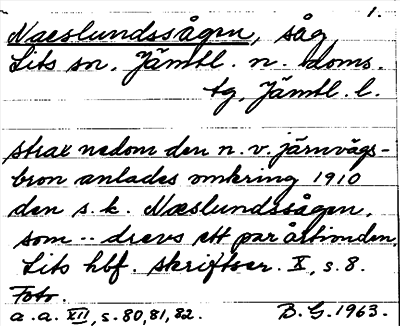 1.
Næslundssågen, såg,
Lits sn. Jämtl. n. doms.
tg, Jämtl. l.
strax nedom den n. v. järnvägs-
bron anlades omkring 1910
den s. k. Næslundssågen,
som -- drevs ett par årtionden,
Lits hbf. skriftser. X, s. 8.
Foto.
a. a. XII, s. 80, 81, 82. B. G. 1963.